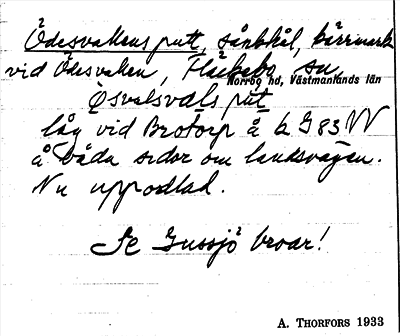 Ödesvallens putt, sänkhål, kärrmark
vid Ödesvallen, Fläckebo sn
Norrbo hd, Västmanlands län
Ösvalsvals put
låg vid Brotorp å b G 83 VV
å båda sidor om landsvägen.
Nu uppodlad.
Se Gussjö broar!
A. THORFORS 1933